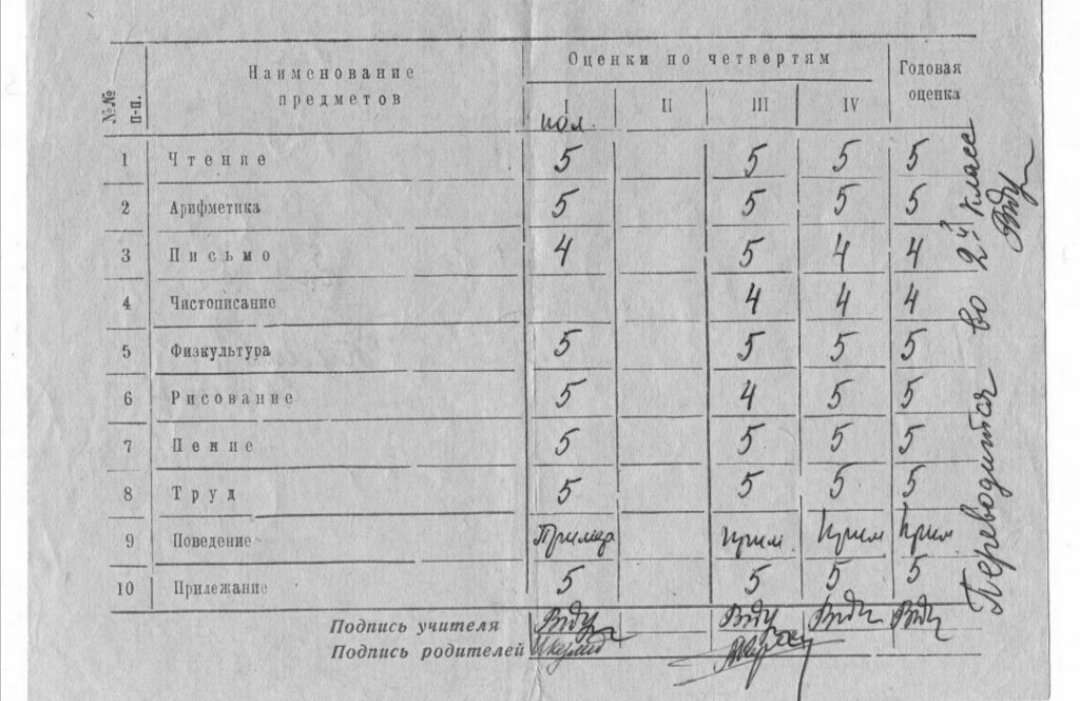 №№ п-п.
Наименование предметов
Оценки по четвертям
Годовая оценка
I II III IV
пол.
1 Чтение 5 5 5 5
2 Арифметика 5 5 5 5
3 Письмо 4 5 4 4
4 Чистописание 4 4 4
5 Физкультура 5 5 5 5
6 Рисование 5 4 5 5
7 Пение 5 5 5 5
8 Труд 5 5 5 5
9 Поведение Пример прим. прим прим
10 Прилежание 5 5 5 5
Подпись учителя
Подпись родителей
Переводится во 2й класс